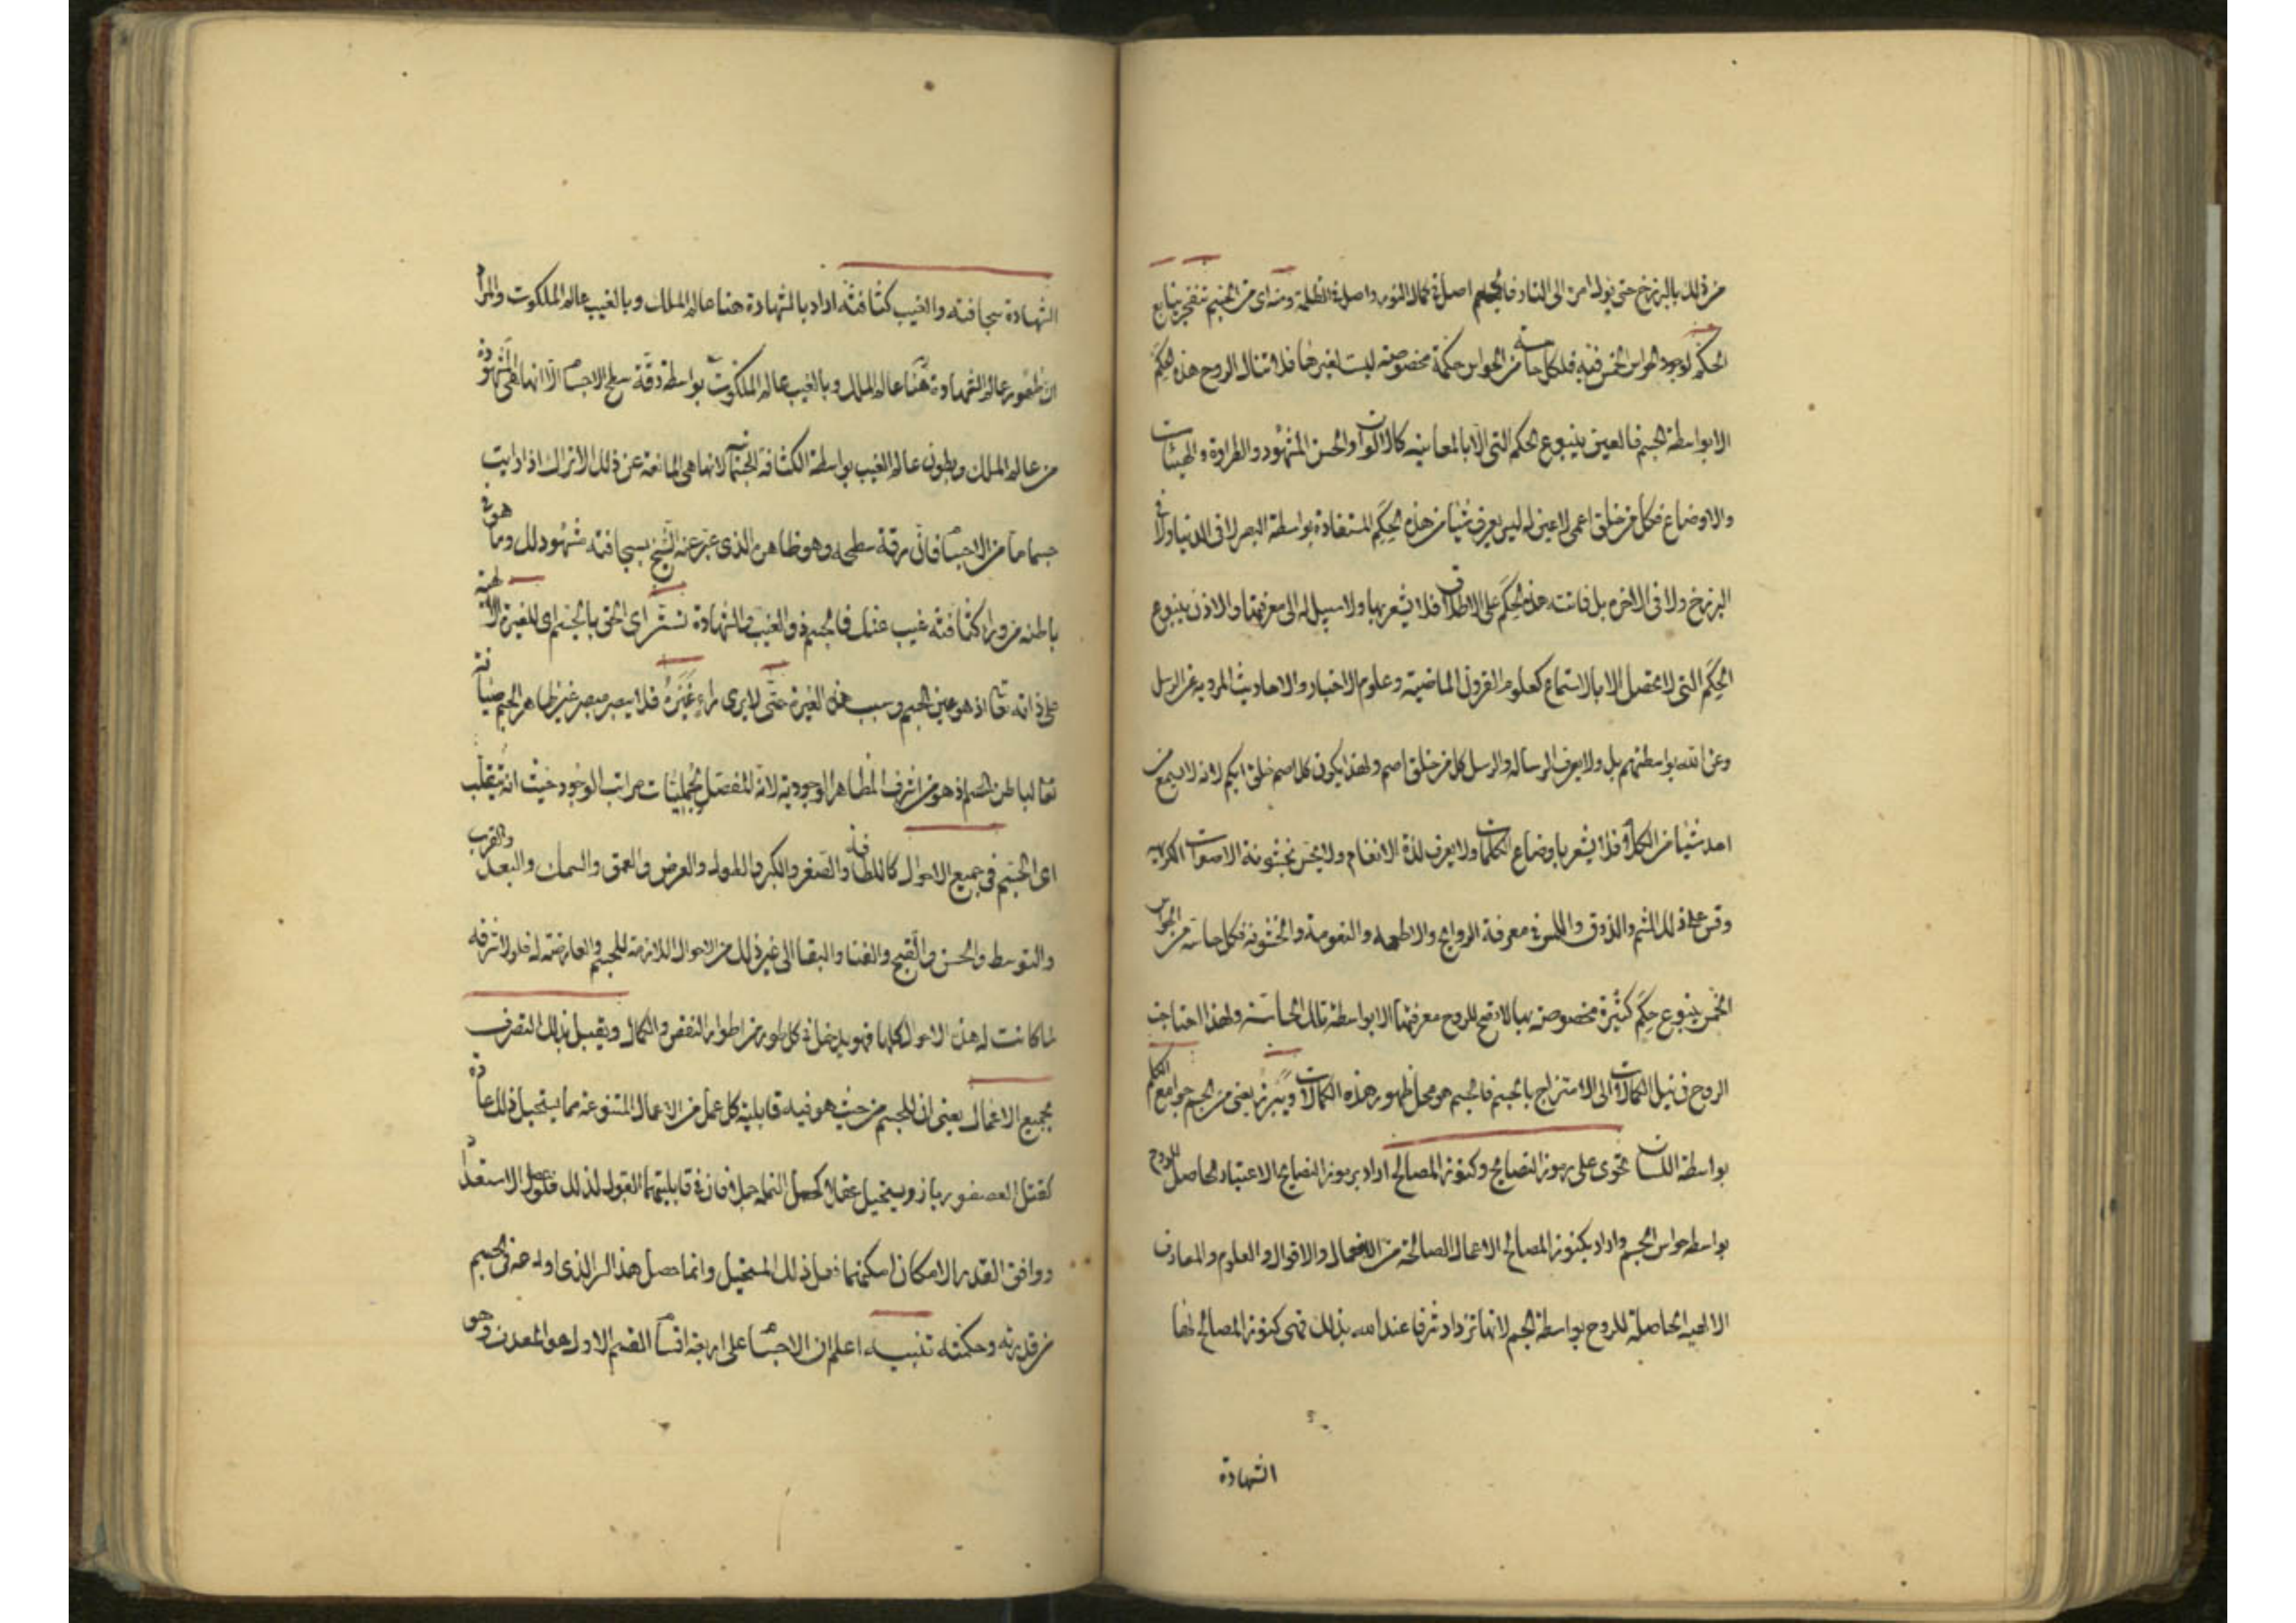 من ذلك بالبرزخ حتى يؤل امره الى النار فالجسم اصل في كمال النور واصل في الظلمة ومنه اى من الجسم تنفجر ينابيع
الحكم لوجود الحواس الخمس فيه فلكل حاسة من الحواس حكمة مخصوصة ليست لغيرها فلا تنال الروح هذه الحكم
الا بواسطة الجسم فالعين ينبوع الحكم التى الا بالمعاينه كالالوان والحسن المشهود والطراوة والهيئات
والاوضاع فكل من خلق اعمى لا عين له ليس يعرف شيئا من هذه الحِكَم المستفادة بواسطة البصر لا فى الدنيا ولا فى
البرزخ ولا فى الاخره بل فاتته هذه الحِكَم على الاطلاق فلا يشعر بها ولا سبيل له الى معرفتها والاذن ينبوع
الحِكَم التى لا تحصل الا بالاستماع كعلوم القرون الماضية وعلوم الاخبار والاحاديث المرويه عن الرسل
وعن الله بواسطتهم بل ولا يعرف الرساله والرسل كل من خلق اصم ولهذا يكون كل اصم خلق ابكم لانه لا يسمع من
احد شيئا من الكلام فلا يشعر باوضاع الكلمات ولا يعرف لذة الانغام ولا يحس بخشونة الاصوات الكريهه
وقس على ذلك الشم والذوق واللمس فى معرفة الروايح والاطعمه والنعومة والخشونه فكل حاسة من الحواس
الخمس ينبوع حِكَم كثيرة مخصوصة بها لا تصح للروح معرفتها الا بواسطة تلك الحاسة ولهذا احتاجت
الروح فى نيل الكمالات الى الامتزاج بالجسم فالجسم هو محل ظهور هذه الكمالات ويبرز يعنى من الجسم جوامع الكلم
بواسطة اللسان تحتوى على رموز النصايح وكنوز المصالح اراد برموز النصايح الاعتبار الحاصل للروح
بواسطه حواس الجسم واراد بكنوز المصالح الاعمال الصالحة من الافعال والاقوال والعلوم والمعارف
الالهيه الحاصلة للروح بواسطة الجسم لانها تزداد شرفا عند الله بذلك فهى كنوز المصالح لها
الشهادة
الشهادة سجافته والغيب كثافته اراد بالشهادة هنا عالم الملك وبالغيب عالم الملكوت والمراد
ان ظهور عالم الشهادة هنا عالم الملك وبالغيب عالم الملكوت بواسطة دقة سطح الاجسام الا انها هى المشهودة
من عالم الملك وبطون عالم الغيب بواسطة الكثافة الجسمانية لانها هى المانعة عن ذلك الا تراك اذا رايت
جسما ما من الاجسام فان رقة سطحه وهو ظاهره الذى عبر عنه الشيخ بسجافته مشهود لك وما هو فى
باطنه من وراء كثافته غيب عنك فالجسم ذو الغيب والشهادة تستر اى الحق بالجسم اى للغيرة الالهية
على ذاته تعالى اذ هو عين الجسم وسبب هذه الغيرة حتى لا يرى راء غيره فلا يبصر مبصر غير ظاهر الجسم صيانة
تعالى لباطن الجسم اذ هو من اشرف المظاهر الوجودية لانه المفصل لجمليات مراتب الوجود حيث انه يتقلب
اى الجسم فى جميع الاحوال كاللطافة والصغر والكبر والطول والعرض والعمق والسمك والبعد والقرب
والتوسط والحسن والقبح والفنا والبقا الى غير ذلك من الاحوال اللازمة للجسم والعارضة له فلولا شرفه
لما كانت له هذه الاحوال كلها فهو يدخل فى كل طور من اطوار النقص والكمال ويقبل بذلك التصرف
بجميع الاعمال يعنى ان للجسم من حيث هو فيه قابلية كل عمل من الاعمال المتنوعة مما يستحيل ذلك عادة
كقتل العصفور باز ويستحيل عقلا كحمل النمله جبلا فان فى قابليتهما القبول لذلك فلو حصل الاستعداد
ووافق القدر الامكان امكنهما فعل ذلك المستحيل وانما حصل هذا السر الذى اودعه فى الجسم
من قدرته وحكمته تنبيه اعلم ان الاجسام على اربعة اقسام القسم الاول هو المعدن وهو